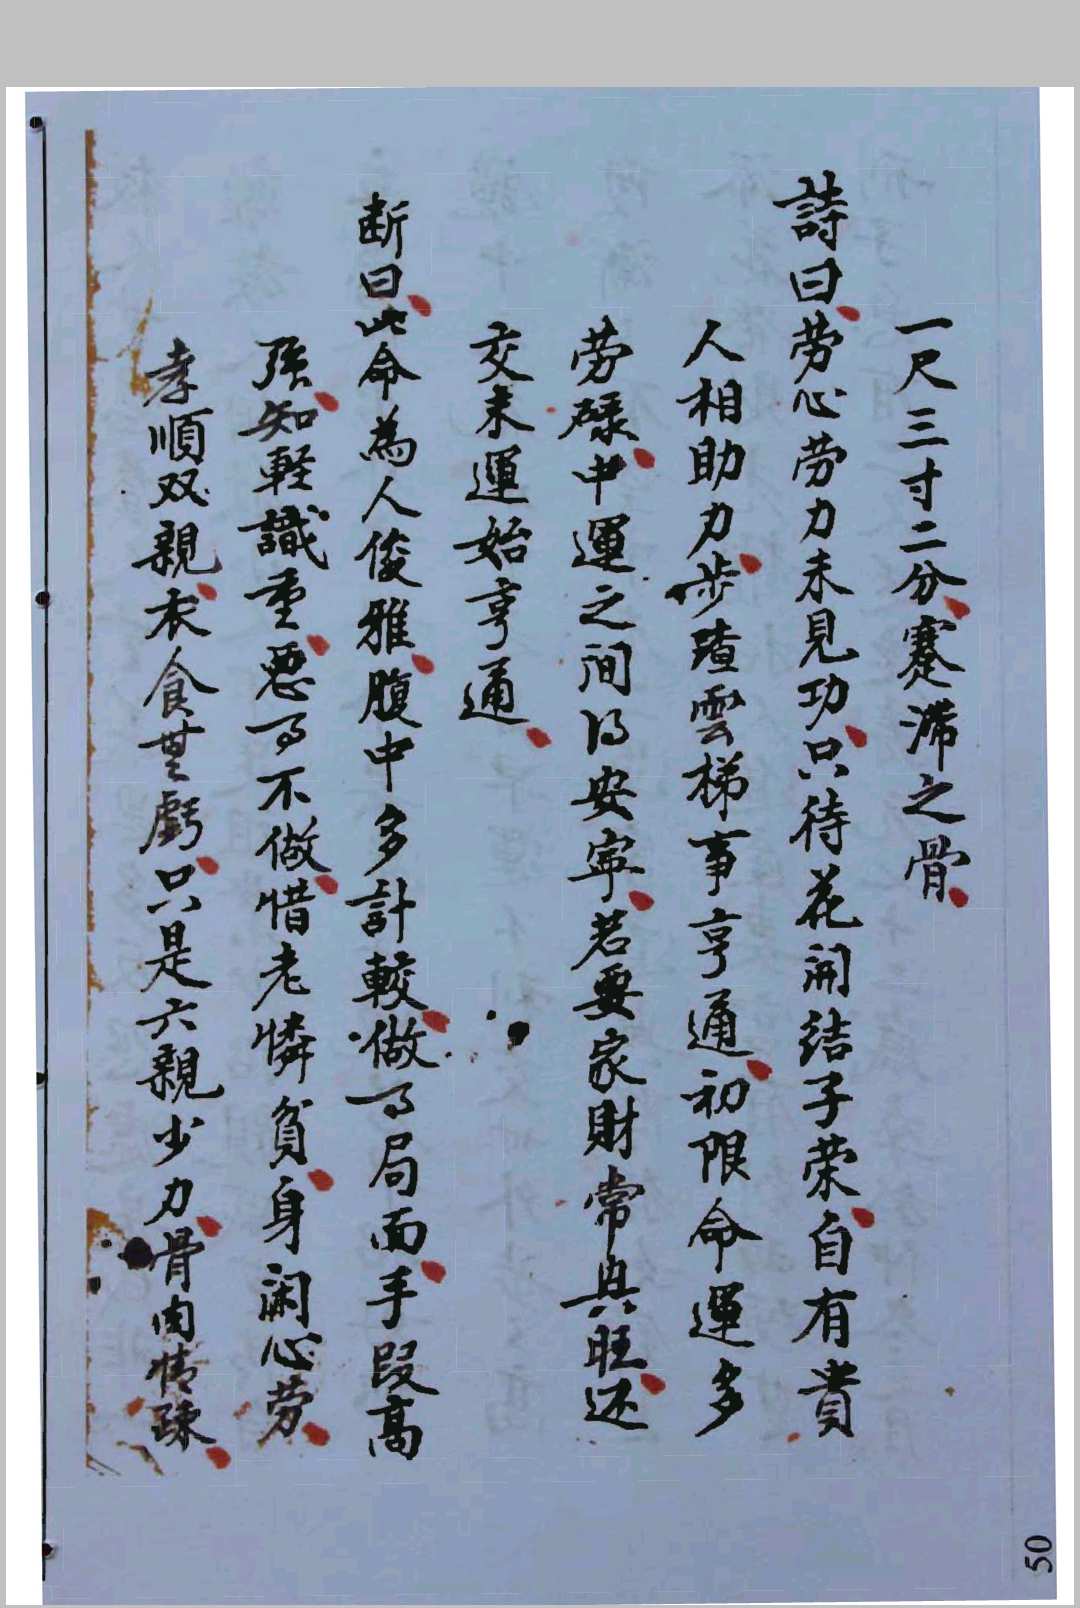 一尺三寸二分蹇滞之骨
詩曰劳心劳力未見功只待花開结子荣自有貴
人相助力步踏雲梯事亨通初限命運多
劳碌中運之间得安寧若要家財常興旺还
交末運始亨通
断曰此命為人俊雅腹中多計較做事局面手段高
强知軽識重惡事不做惜老憐貧身闲心劳
孝順双親衣食無虧只是六親少力骨肉情疎
50